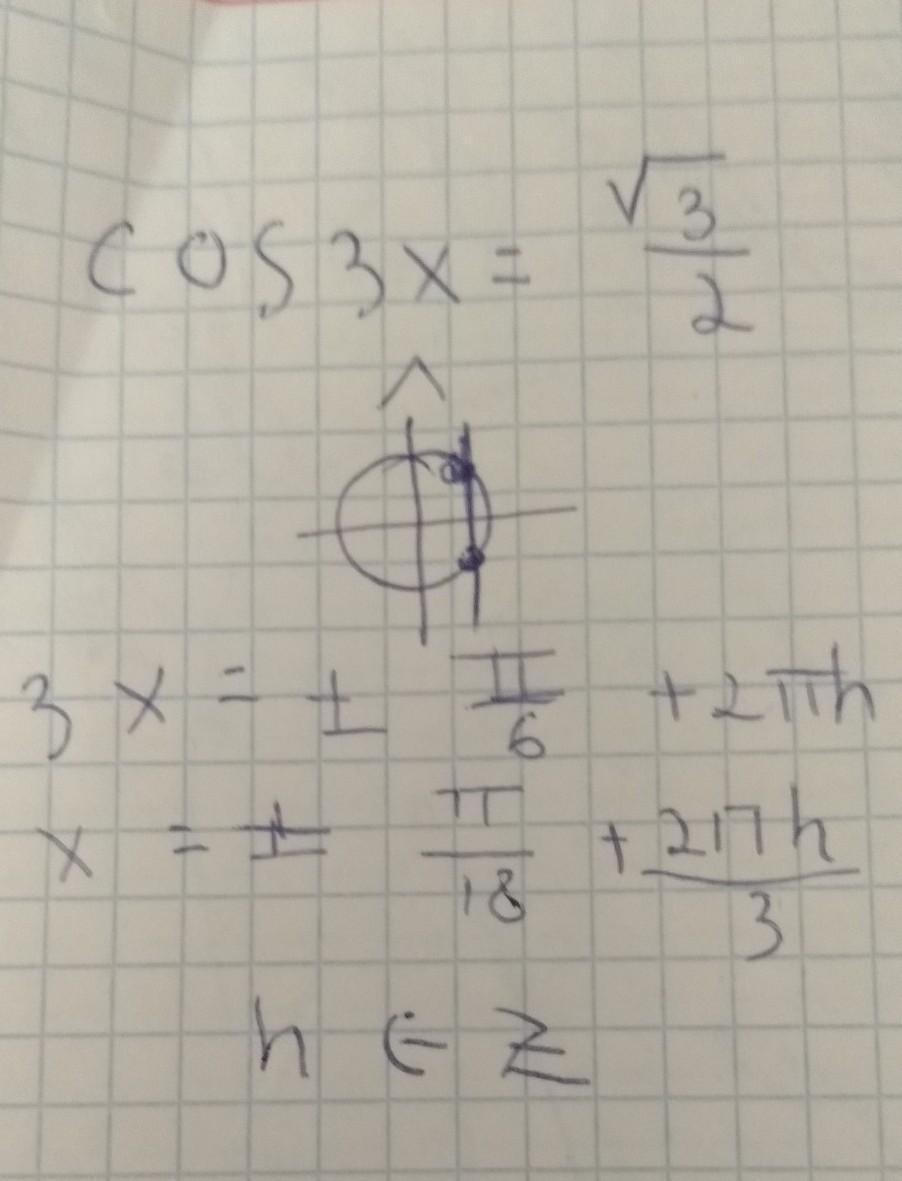 cos3x = √3/2
3x = ± π/6 + 2πn
x = ± π/18 + 2πn/3
n ∈ Z